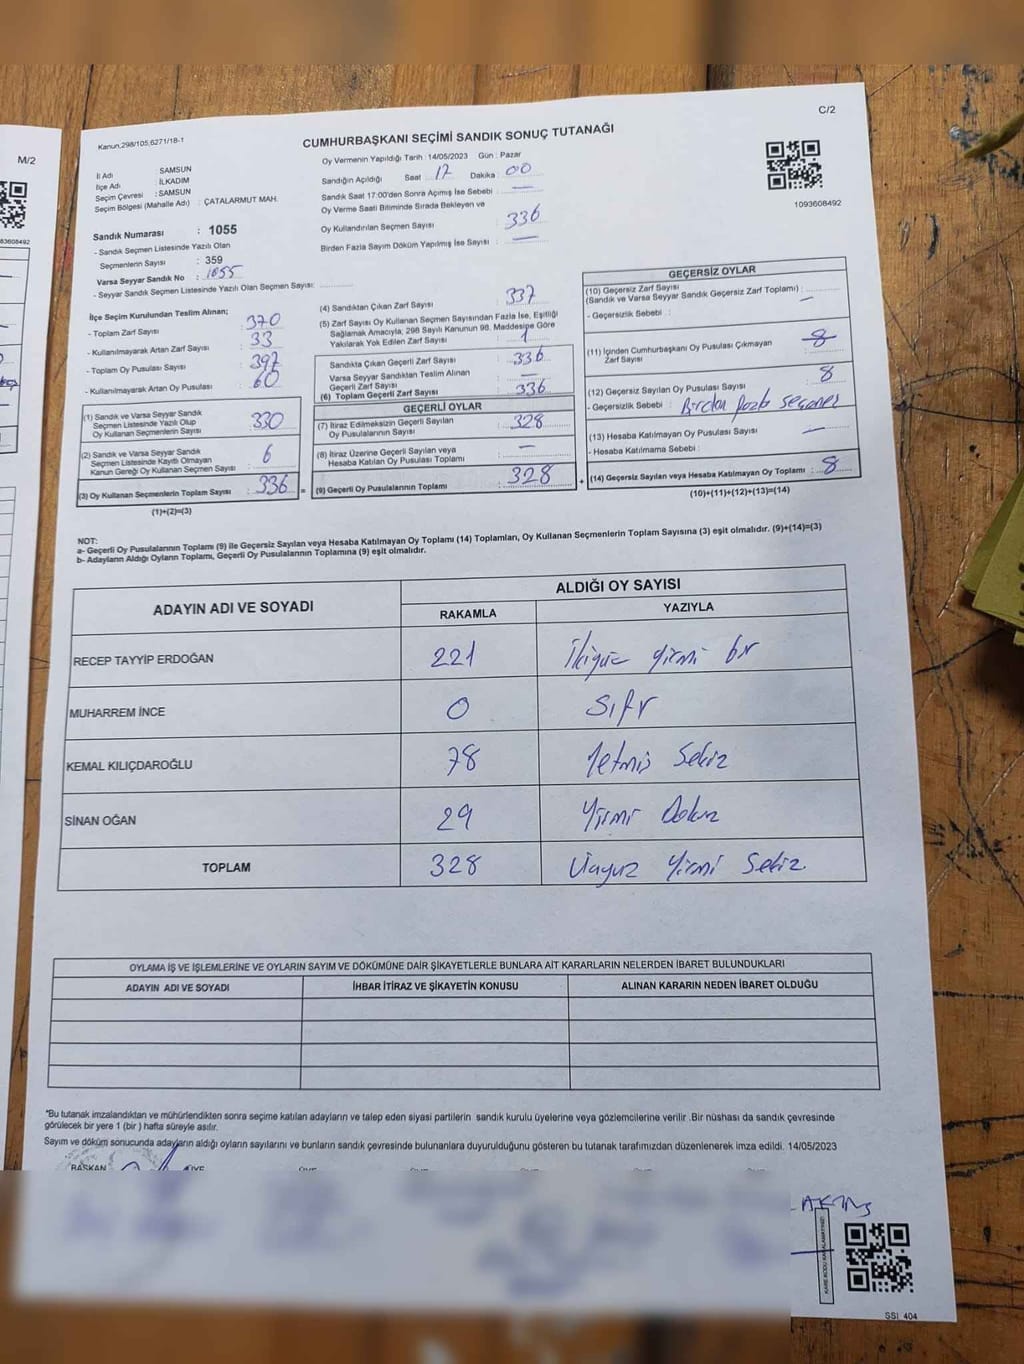 C/2
Kanun,298/105,6271/18-1
CUMHURBAŞKANI SEÇİMİ SANDIK SONUÇ TUTANAĞI
M/2
İl Adı : SAMSUN
İlçe Adı : İLKADIM
Seçim Çevresi : SAMSUN
Seçim Bölgesi (Mahalle Adı) : ÇATALARMUT MAH.
Sandık Numarası : 1055
- Sandık Seçmen Listesinde Yazılı Olan
Seçmenlerin Sayısı : 359
Varsa Seyyar Sandık No : 1055
- Seyyar Sandık Seçmen Listesinde Yazılı Olan Seçmen Sayısı:
Oy Vermenin Yapıldığı Tarih :14/05/2023 Gün : Pazar
Sandığın Açıldığı Saat 17 Dakika 00
Sandık Saat 17:00'den Sonra Açımış İse Sebebi : —
Oy Verme Saati Bitiminde Sırada Bekleyen ve
Oy Kullandırılan Seçmen Sayısı : 336
Birden Fazla Sayım Döküm Yapılmış İse Sayısı : —
1093608492
İlçe Seçim Kurulundan Teslim Alınan;
- Toplam Zarf Sayısı : 370
- Kullanılmayarak Artan Zarf Sayısı : 33
- Toplam Oy Pusulası Sayısı : 397
- Kullanılmayarak Artan Oy Pusulası : 60
(1) Sandık ve Varsa Seyyar Sandık
Seçmen Listesinde Yazılı Olup
Oy Kullanan Seçmenlerin Sayısı : 330
(2) Sandık ve Varsa Seyyar Sandık
Seçmen Listesinde Kayıtlı Olmayan
Kanun Gereği Oy Kullanan Seçmen Sayısı : 6
(3) Oy Kullanan Seçmenlerin Toplam Sayısı : 336 =
(1)+(2)=(3)
(4) Sandıktan Çıkan Zarf Sayısı : 337
(5) Zarf Sayısı Oy Kullanan Seçmen Sayısından Fazla İse, Eşitliği
Sağlamak Amacıyla; 298 Sayılı Kanunun 98. Maddesine Göre
Yakılarak Yok Edilen Zarf Sayısı : 1
Sandıkta Çıkan Geçerli Zarf Sayısı : 336
Varsa Seyyar Sandıktan Teslim Alınan
Geçerli Zarf Sayısı : —
(6) Toplam Geçerli Zarf Sayısı : 336
GEÇERLİ OYLAR
(7) İtiraz Edilmeksizin Geçerli Sayılan
Oy Pusulalarının Sayısı : 328
(8) İtiraz Üzerine Geçerli Sayılan veya
Hesaba Katılan Oy Pusulası Toplamı : —
(9) Geçerli Oy Pusulalarının Toplamı : 328 +
GEÇERSİZ OYLAR
(10) Geçersiz Zarf Sayısı
(Sandık ve Varsa Seyyar Sandık Geçersiz Zarf Toplamı) : —
- Geçersizlik Sebebi :
(11) İçinden Cumhurbaşkanı Oy Pusulası Çıkmayan
Zarf Sayısı :
(12) Geçersiz Sayılan Oy Pusulası Sayısı : 8
- Geçersizlik Sebebi : Birden fazla seçenek
(13) Hesaba Katılmayan Oy Pusulası Sayısı : —
- Hesaba Katılmama Sebebi :
(14) Geçersiz Sayılan veya Hesaba Katılmayan Oy Toplamı : 8
(10)+(11)+(12)+(13)=(14)
NOT:
a- Geçerli Oy Pusulalarının Toplamı (9) ile Geçersiz Sayılan veya Hesaba Katılmayan Oy Toplamı (14) Toplamları, Oy Kullanan Seçmenlerin Toplam Sayısına (3) eşit olmalıdır. (9)+(14)=(3)
b- Adayların Aldığı Oyların Toplamı, Geçerli Oy Pusulalarının Toplamına (9) eşit olmalıdır.
ADAYIN ADI VE SOYADI ALDIĞI OY SAYISI
RAKAMLA YAZIYLA
RECEP TAYYİP ERDOĞAN 221 İkiyüz yirmi bir
MUHARREM İNCE 0 Sıfır
KEMAL KILIÇDAROĞLU 78 Yetmiş Sekiz
SİNAN OĞAN 29 Yirmi Dokuz
TOPLAM 328 Üçyüz Yirmi Sekiz
OYLAMA İŞ VE İŞLEMLERİNE VE OYLARIN SAYIM VE DÖKÜMÜNE DAİR ŞİKAYETLERLE BUNLARA AİT KARARLARIN NELERDEN İBARET BULUNDUKLARI
ADAYIN ADI VE SOYADI İHBAR İTİRAZ VE ŞİKAYETİN KONUSU ALINAN KARARIN NEDEN İBARET OLDUĞU
"Bu tutanak imzalandıktan ve mühürlendikten sonra seçime katılan adayların ve talep eden siyasi partilerin sandık kurulu üyelerine veya gözlemcilerine verilir .Bir nüshası da sandık çevresinde
görülecek bir yere 1 (bir ) hafta süreyle asılır.
Sayım ve döküm sonucunda adayların aldığı oyların sayılarını ve bunların sandık çevresinde bulunanlara duyurulduğunu gösteren bu tutanak tarafımızdan düzenlenerek imza edildi. 14/05/2023
BAŞKAN ÜYE
KARE KODU KARALAMAYINIZ!
SSI 404